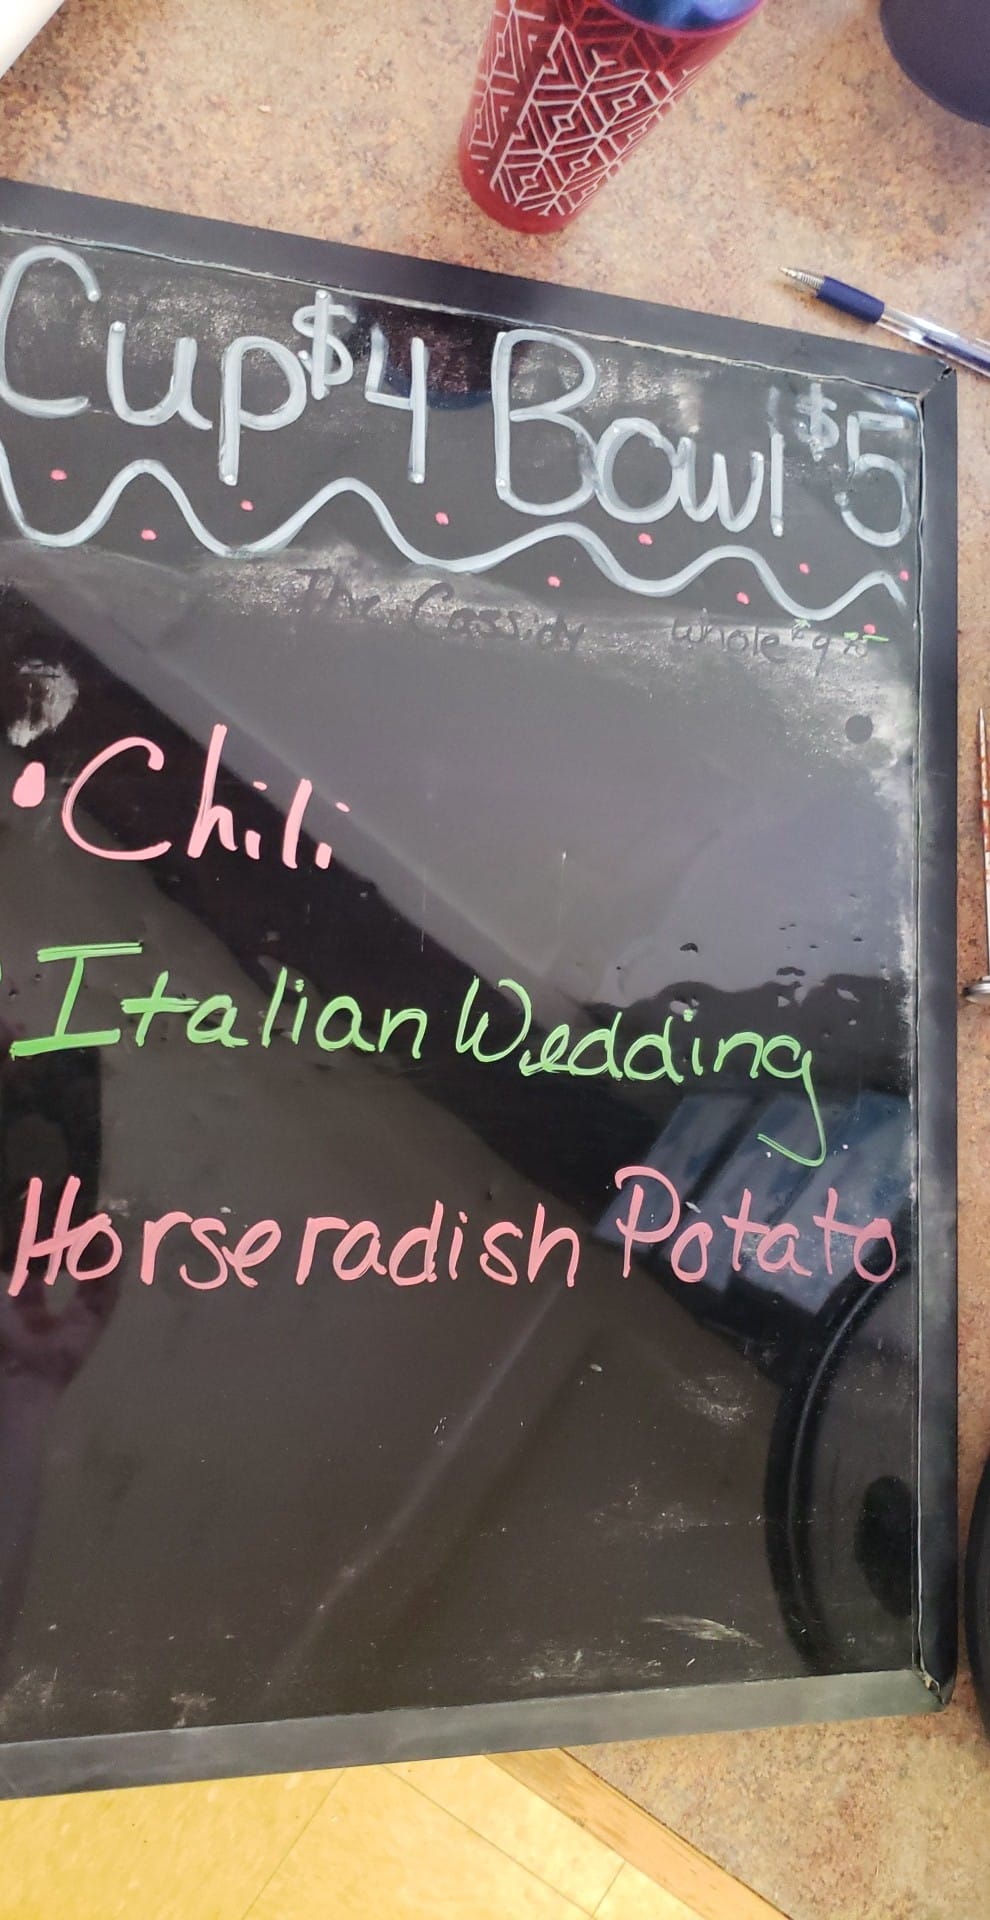 Cup $4 Bowl $5
The Cassidy whole $9.75
• Chili
Italian Wedding
Horseradish Potato